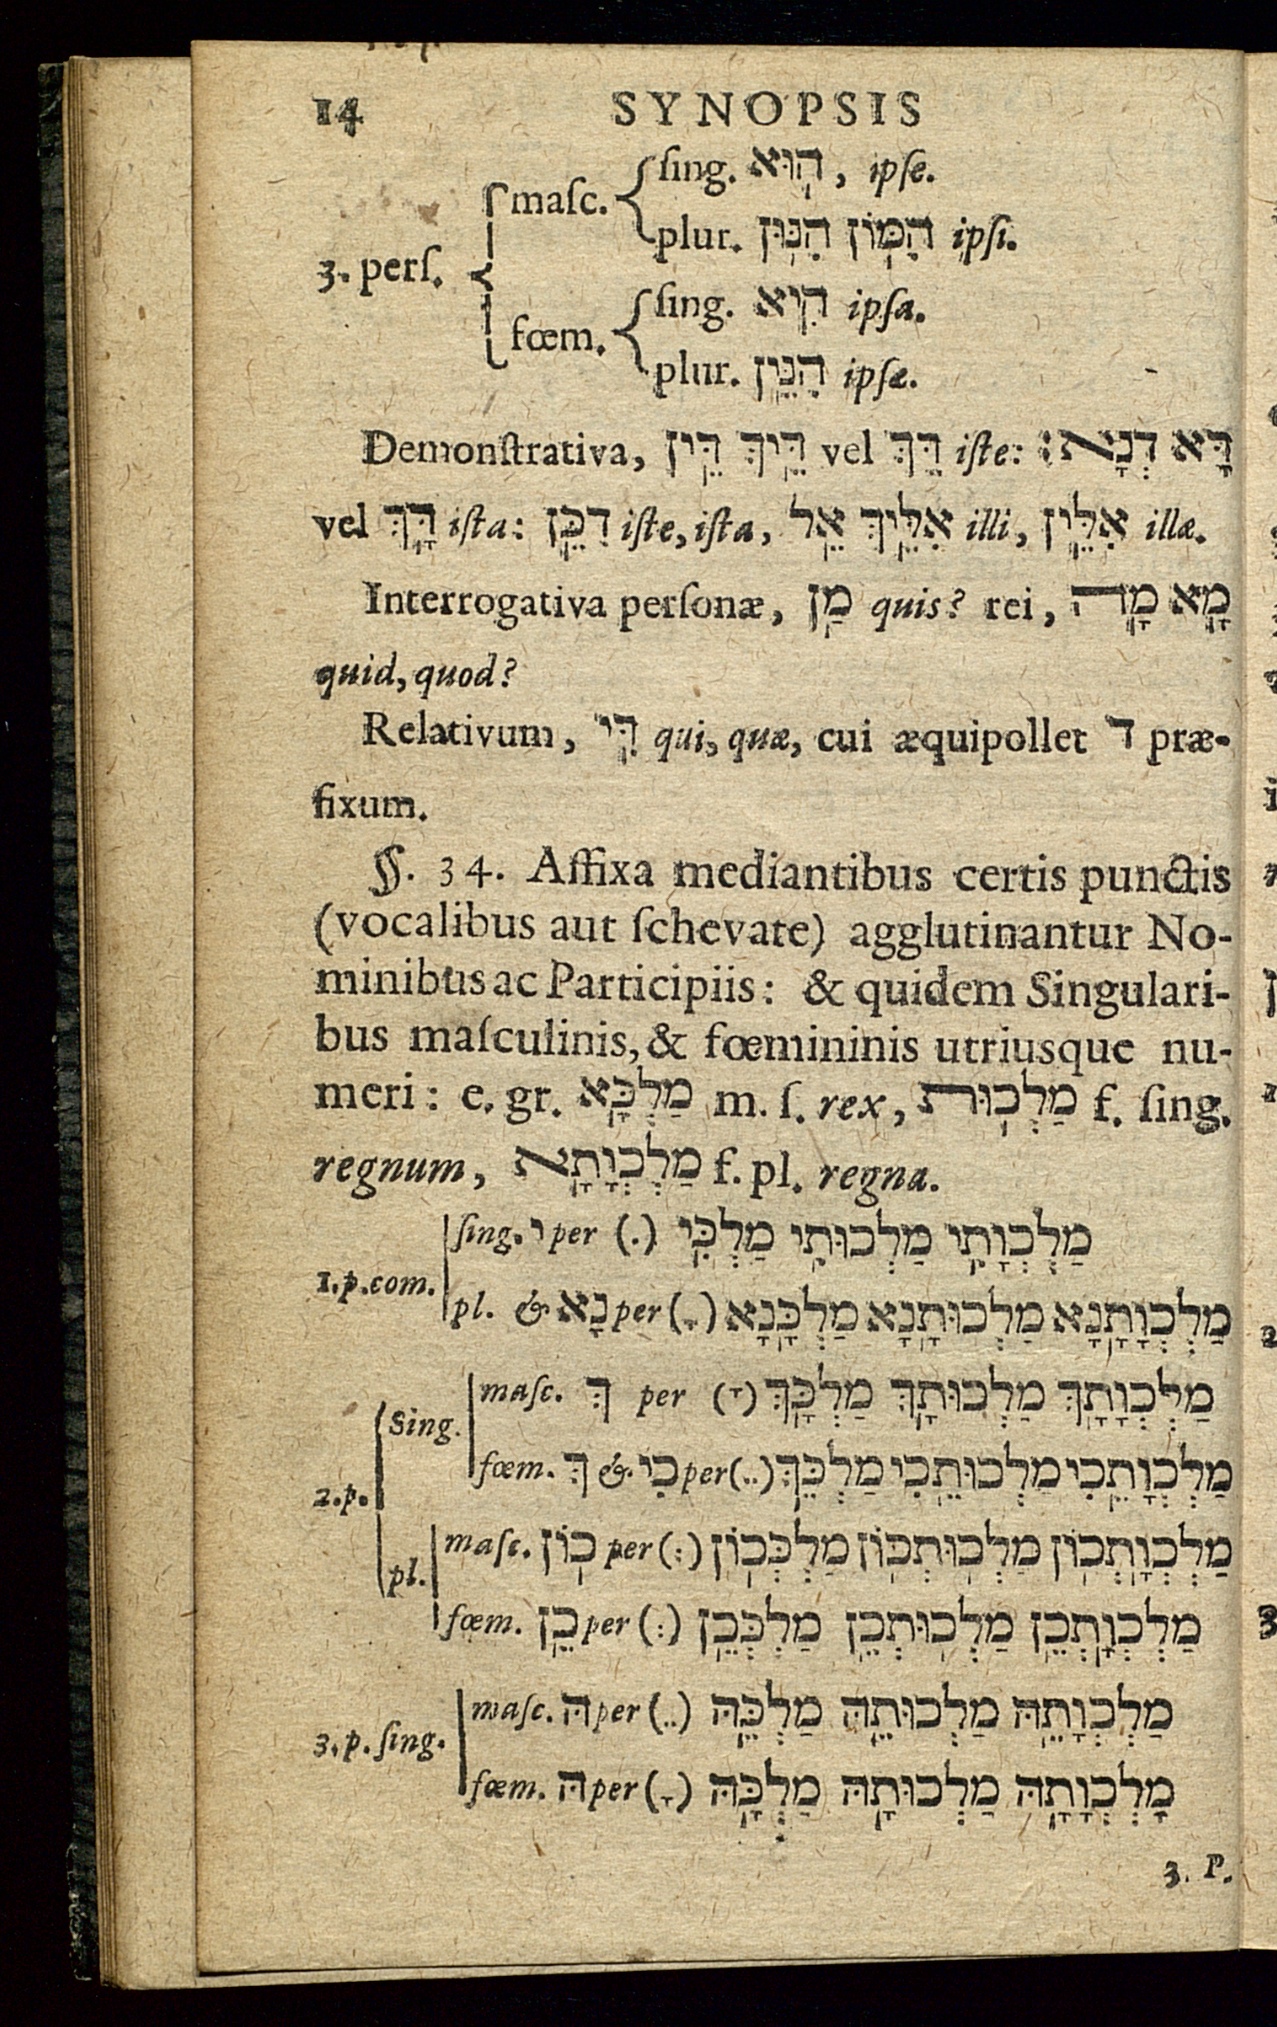 14 SYNOPSIS
3. perſ.
maſc.
ſing. הוּא, ipſe.
plur. הִמּוֹן הִנּוּן ipſi.
fœm.
ſing. הִיא ipſa.
plur. הִנֵּין ipſæ.
Demonſtrativa, דֵּין דֵּיךְ vel דֵּךְ iſte: דָּא דְנָא:
vel דָּךְ iſta: דִּכֵּן iſte, iſta, אִלֵּיךְ אֵל illi, אִלֵּין illæ.
Interrogativa perſonæ, מַן quis? rei, מָא מָה
quid, quod?
Relativum, דִּי qui, quæ, cui æquipollet ד præ-
fixum.
§. 34. Affixa mediantibus certis punctis
(vocalibus aut ſchevate) agglutinantur No-
minibus ac Participiis: & quidem Singulari-
bus maſculinis, & fœmininis utriusque nu-
meri: e. gr. מַלְכָּא m. ſ. rex, מַלְכוּת f. ſing.
regnum, מַלְכְוָתָא f. pl. regna.
1. p. com.
ſing. י per (.) מַלְכְוָתִי מַלְכוּתִי מַלְכִּי
pl. & נָא per (ָ) מַלְכְוָתָנָא מַלְכוּתָנָא מַלְכָּנָא
2. p.
Sing.
maſc. ךְ per (ָ) מַלְכְוָתָךְ מַלְכוּתָךְ מַלְכָּךְ
fœm. ךְ & כִי per (..) מַלְכְוָתֵכִי מַלְכוּתֵכִי מַלְכֵּךְ
pl.
maſc. כוֹן per (:) מַלְכְוָתְכוֹן מַלְכוּתְכוֹן מַלְכְּכוֹן
fœm. כֵן per (:) מַלְכְוָתְכֵן מַלְכוּתְכֵן מַלְכְּכֵן
3. p. ſing.
maſc. הּ per (..) מַלְכְוָתֵהּ מַלְכוּתֵהּ מַלְכֵּהּ
fœm. הּ per (ָ) מָלְכְוָתָהּ מַלְכוּתָהּ מַלְכָּהּ
3. P.